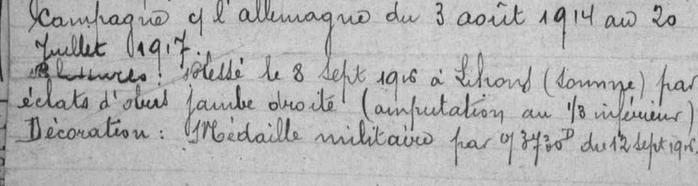 Campagne c/ l'allemagne du 3 août 1914 au 20
Juillet 1917.
Blessures : Blessé le 8 sept 1916 à Lihons (Somme) par
éclats d'obus jambe droite (amputation au 1/3 inférieur)
Décoration : Médaille militaire par 3730 D du 12 sept 1916.